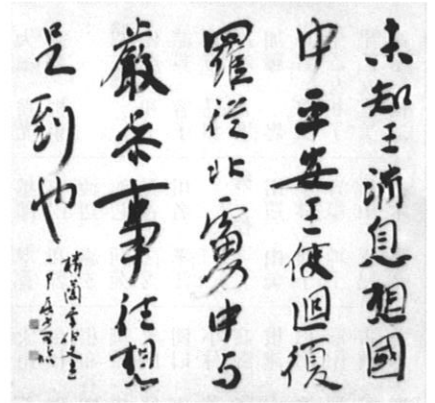 未知王消息想國
中平安王使迴復
羅從北虜中与
嚴參事往想
足到也